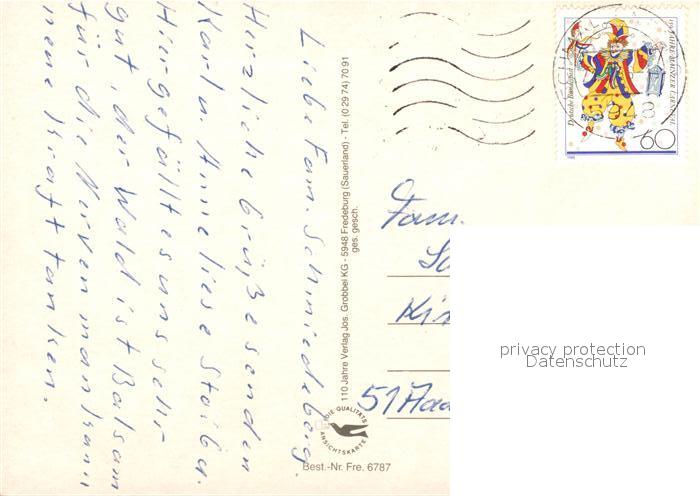 Liebe Fam. Schmiedeberg.
Herzliche Grüße senden
Karl u. Anneliese Staiber.
Hier gefällt es uns sehr
gut, der Wald ist Balsam
für die Nerven man kann
neue Kraft tanken.
110 Jahre Verlag Jos. Grobbel KG - 5948 Fredeburg (Sauerland) - Tel. (0 29 74) 70 91
ges. gesch.
DIE QUALITÄTS
ANSICHTSKARTE
Best.-Nr. Fre. 6787
Deutsche Bundespost
150 JAHRE MAINZER CARNEVAL
60
Fam.
51 Aa
privacy protection
Datenschutz